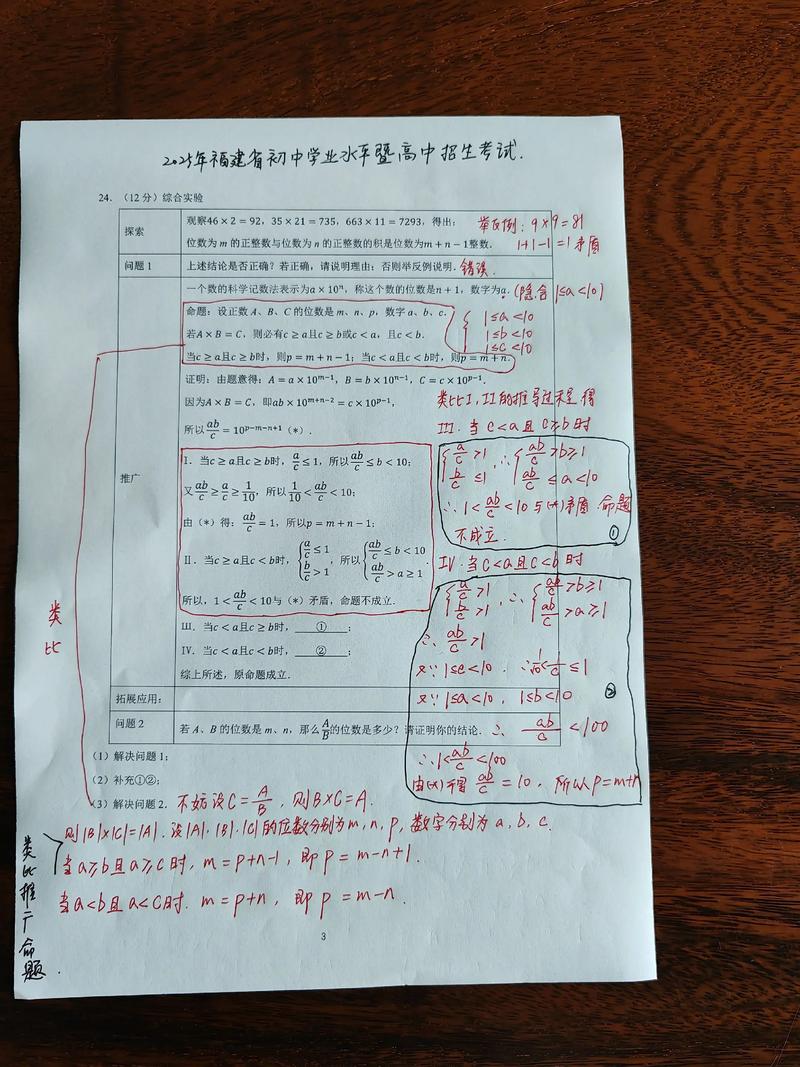 2025年福建省初中学业水平暨高中招生考试.
24. （12分）综合实验
探索
观察46 × 2 = 92，35 × 21 = 735，663 × 11 = 7293，得出：
位数为 m 的正整数与位数为 n 的正整数的积是位数为m + n − 1整数.
举反例: 9×9=81
1+1-1=1矛盾
问题 1
上述结论是否正确？若正确，请说明理由；否则举反例说明.
错误.
推广
一个数的科学记数法表示为a × 10ⁿ，称这个数的位数是n + 1，数字为a.
(隐含 1≤a<10)
命题：设正数 A、B、C 的位数是 m、n、p，数字 a、b、c.
若A × B = C，则必有c ≥ a且c ≥ b或c < a，且c < b.
当c ≥ a且c ≥ b时，则p = m + n − 1；当c < a且c < b时，则p = m + n.
1≤a<10
1≤b<10
1≤c<10
证明：由题意得：A = a × 10ᵐ⁻¹，B = b × 10ⁿ⁻¹，C = c × 10ᵖ⁻¹.
因为A × B = C，即ab × 10ᵐ⁺ⁿ⁻² = c × 10ᵖ⁻¹，
所以ab/c = 10ᵖ⁻ᵐ⁻ⁿ⁺¹（*）.
I．当c ≥ a且c ≥ b时，a/c ≤ 1，所以ab/c ≤ b < 10；
又ab/c ≥ a/c ≥ 1/10，所以1/10 < ab/c < 10；
由（*）得：ab/c = 1，所以p = m + n − 1；
II．当c ≥ a且c < b时，{a/c ≤ 1, b/c > 1，所以{ab/c ≤ b < 10, ab/c > a ≥ 1.
所以，1 < ab/c < 10与（*）矛盾，命题不成立.
III．当c < a且c ≥ b时，①；
IV．当c < a且c < b时，②；
综上所述，原命题成立.
类比I, II的推导过程得
III. 当 c<a 且 c≥b 时
{a/c >1, b/c ≤1 ∴{ab/c >b≥1, ab/c ≤a<10
∴ 1<ab/c<10 与(*)矛盾 命题
不成立.
①
IV. 当 c<a且c<b时
{a/c >1, b/c >1, ∴{ab/c >b≥1, ab/c >a≥1
∴ ab/c >1
又∵ 1≤c<10, ∴1/10<1/c≤1
又∵ 1≤a<10, 1≤b<10
②
∴ ab/c <100
∴1<ab/c<100
由(*)得 ab/c =10, 所以 p=m+n
类比
拓展应用：
问题 2
若 A、B 的位数是 m、n，那么A/B的位数是多少？请证明你的结论.
（1）解决问题1；
（2）补充①②；
（3）解决问题2.
不妨设C=A/B, 则B×C=A.
则|B|×|C|=|A|. 设|A|.|B|.|C|的位数分别为m,n,p, 数字分别为 a, b, c.
当 a≥b且a≥c时, m=p+n-1, 即 p=m-n+1.
当a<b且a<c时. m=p+n, 即 p=m-n.
类比推广命题.
3